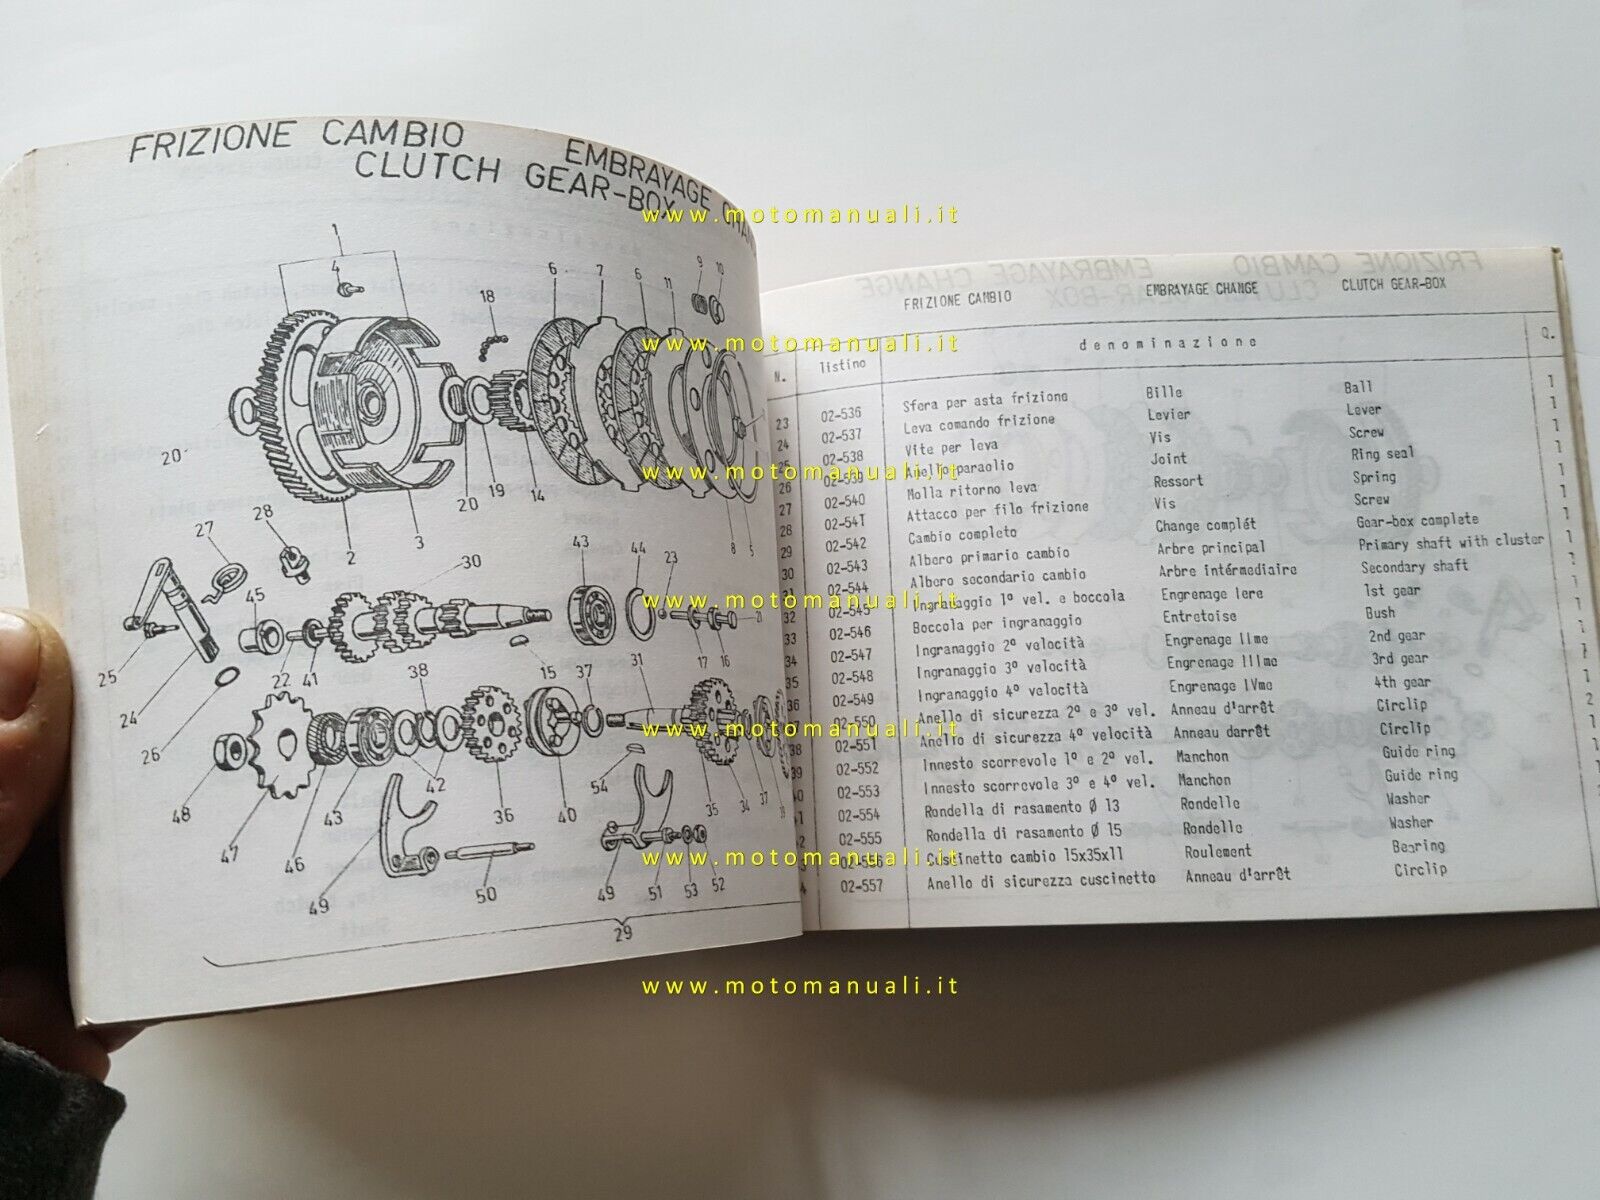 FRIZIONE CAMBIO EMBRAYAGE CHAN
CLUTCH GEAR-BOX
www.motomanuali.it
1
4
18
6 7 6 11 9 10
20
2 3 20 19 14 8 5
27 28 30 43 44 23
45
25 24 26 22 41 38 15 37 31 17 16 21
48 47 46 43 42 36 40 54 35 34 37
49 50 49 51 53 52
29
FRIZIONE CAMBIO EMBRAYAGE CHANGE CLUTCH GEAR-BOX
N. listino denominazione Q.
23 02-536 Sfera per asta frizione Bille Ball 1
24 02-537 Leva comando frizione Levier Lever 1
25 02-538 Vite per leva Vis Screw 1
26 02-539 Anello paraolio Joint Ring seal 1
27 02-540 Molla ritorno leva Ressort Spring 1
28 02-541 Attacco per filo frizione Vis Screw 1
29 02-542 Cambio completo Change complét Gear-box complete 1
30 02-543 Albero primario cambio Arbre principal Primary shaft with cluster 1
31 02-544 Albero secondario cambio Arbre intérmediaire Secondary shaft 1
32 02-545 Ingranaggio 1º vel. e boccola Engrenage Iere 1st gear 1
33 02-546 Boccola per ingranaggio Entretoise Bush
34 02-547 Ingranaggio 2º velocità Engrenage IIme 2nd gear
35 02-548 Ingranaggio 3º velocità Engrenage IIIme 3rd gear
36 02-549 Ingranaggio 4º velocità Engrenage IVme 4th gear
02-550 Anello di sicurezza 2º e 3º vel. Anneau d'arrêt Circlip 2
38 02-551 Anello di sicurezza 4º velocità Anneau darrêt Circlip
39 02-552 Innesto scorrevole 1º e 2º vel. Manchon Guide ring
40 02-553 Innesto scorrevole 3º e 4º vel. Manchon Guide ring
41 02-554 Rondella di rasamento Ø 13 Rondelle Washer
02-555 Rondella di rasamento Ø 15 Rondelle Washer
02-556 Cuscinetto cambio 15x35x11 Roulement Bearing
02-557 Anello di sicurezza cuscinetto Anneau d'arrêt Circlip
www.motomanuali.it
www.motomanuali.it
www.motomanuali.it
www.motomanuali.it
www.motomanuali.it
www.motomanuali.it